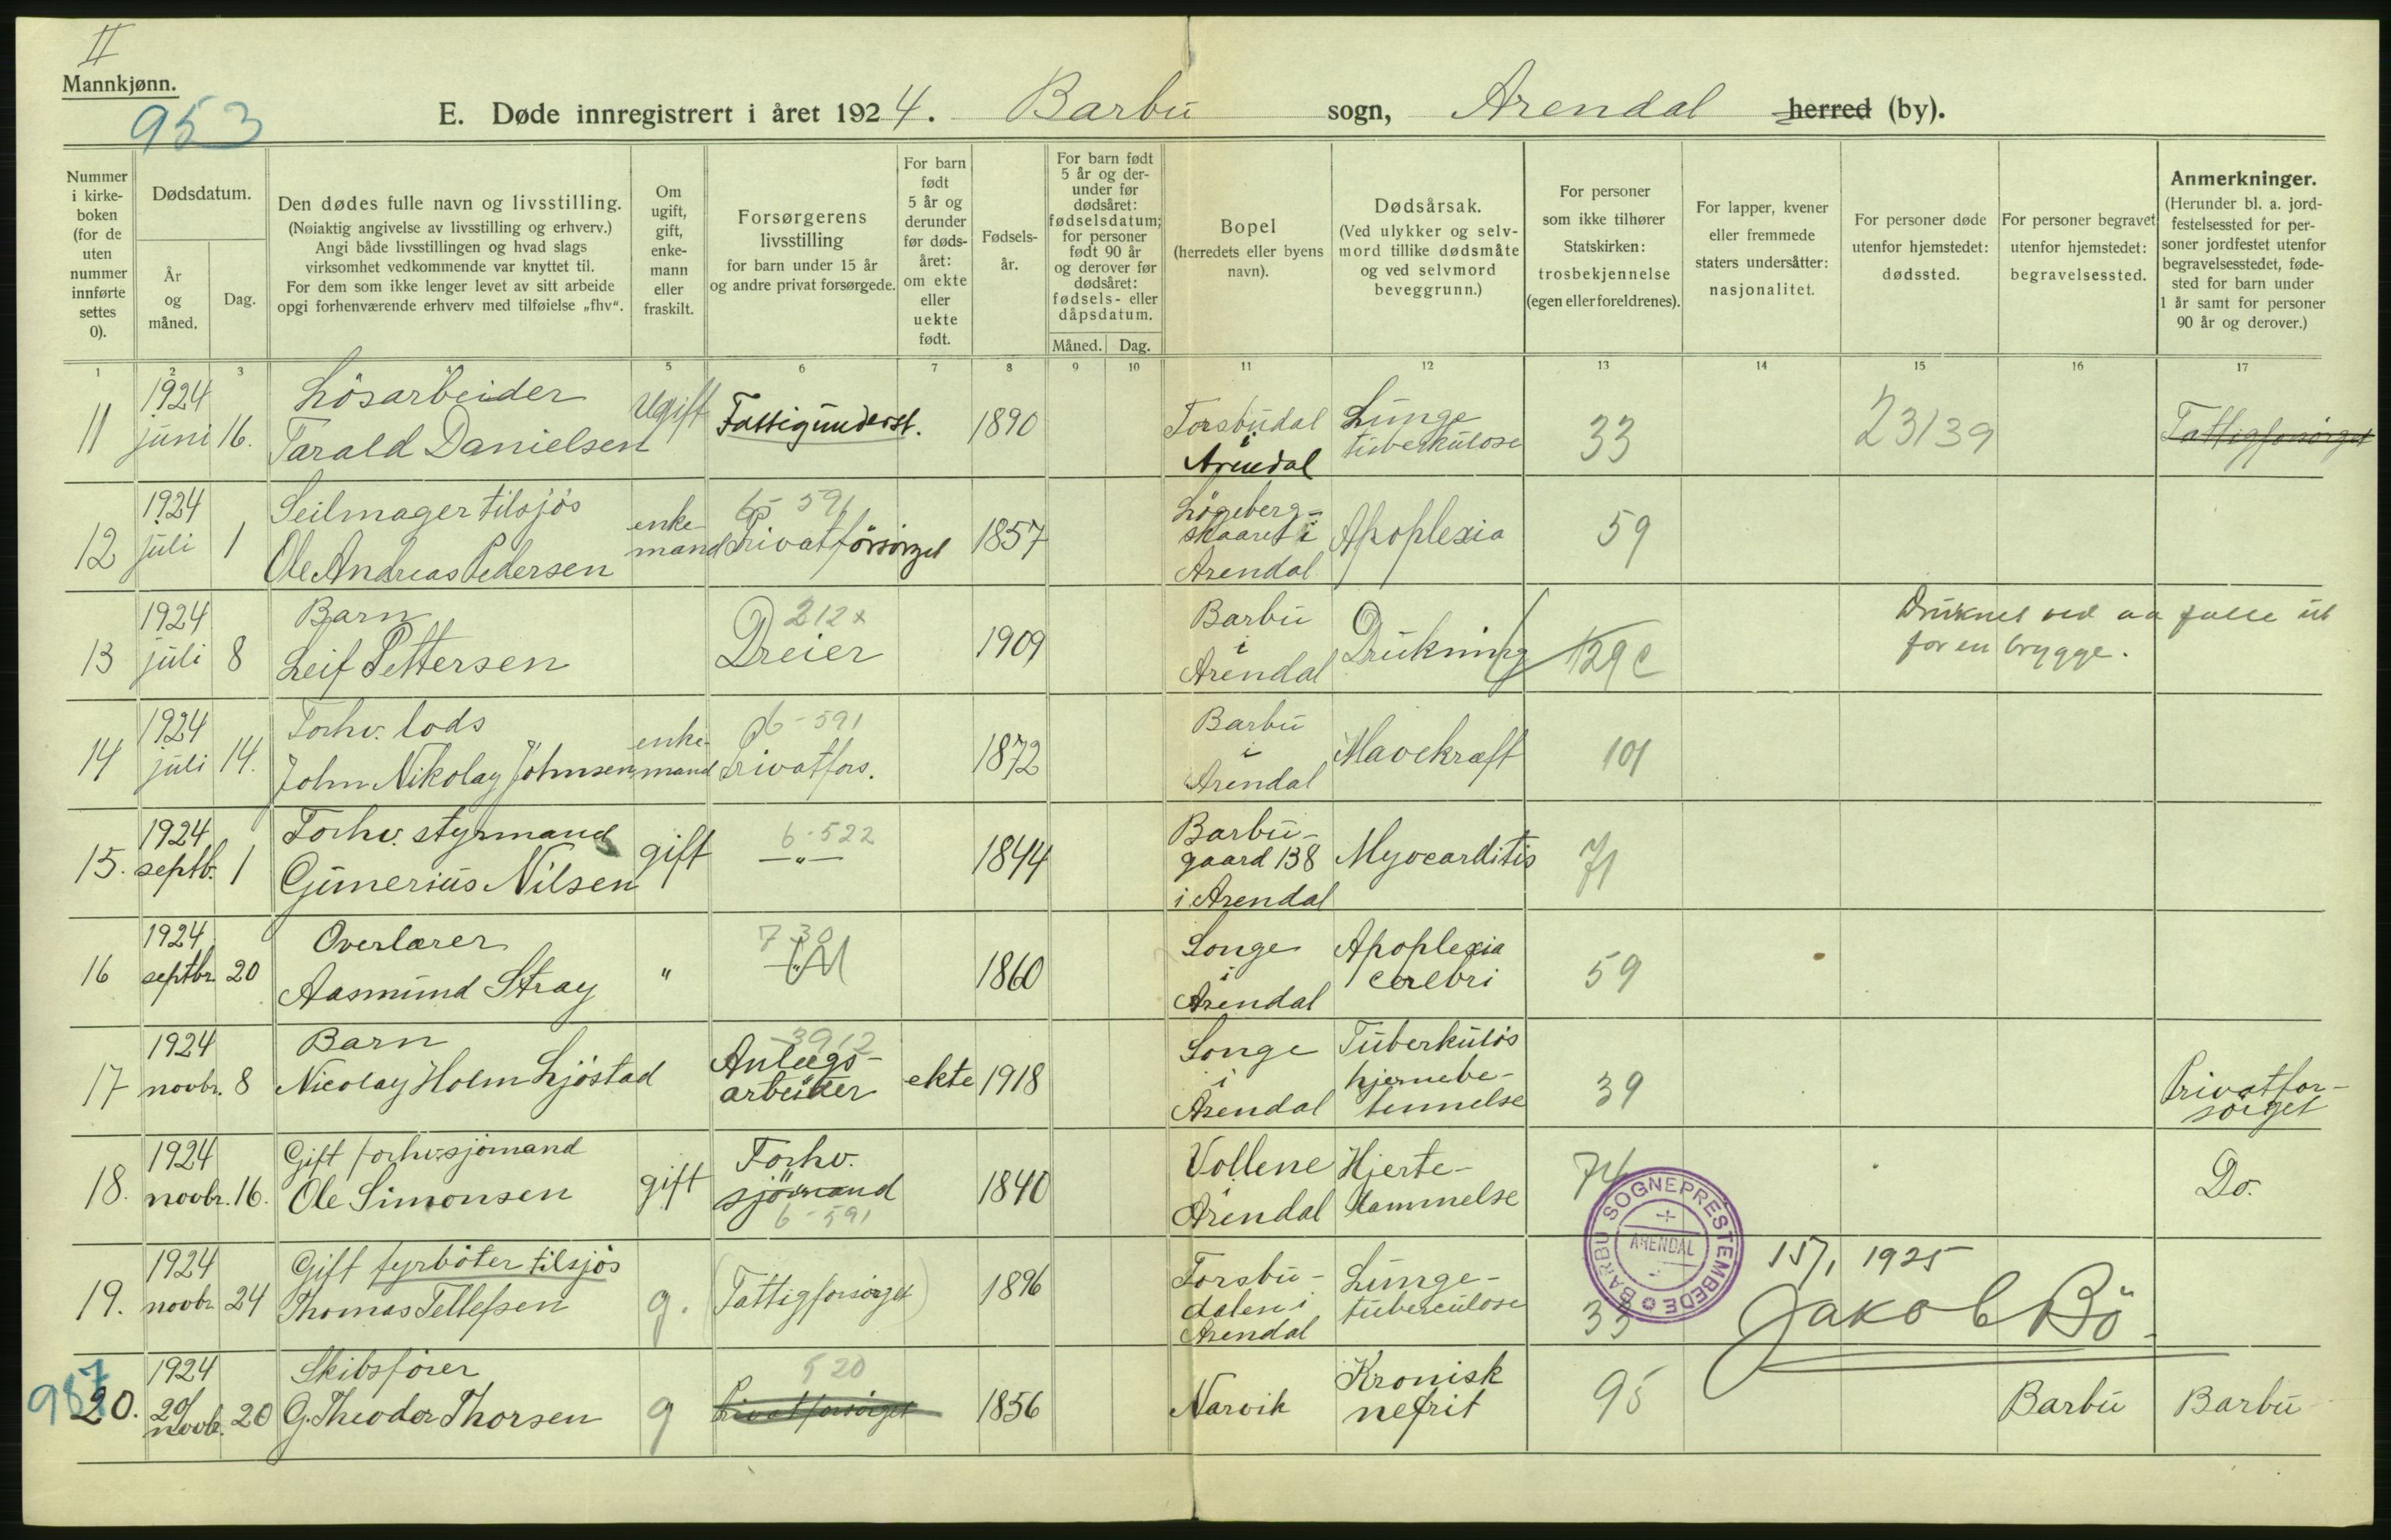 II
Mannkjønn.
953
E. Døde innregistrert i året 1924. Barbu sogn, Arendal herred (by).
Nummer i kirke-boken (for de uten nummer innførte settes 0).
Dødsdatum.
År og måned.
Dag.
Den dødes fulle navn og livsstilling.
(Nøiaktig angivelse av livsstilling og erhverv.)
Angi både livsstillingen og hvad slags
virksomhet vedkommende var knyttet til.
For dem som ikke lenger levet av sitt arbeide
opgi forhenværende erhverv med tilføielse „fhv“.
Om ugift, gift, enke-mann eller fraskilt.
Forsørgerens
livsstilling
for barn under 15 år
og andre privat forsørgede.
For barn født 5 år og derunder før døds-året: om ekte eller uekte født.
Fødsels-år.
For barn født 5 år og der-under før dødsåret: fødselsdatum; for personer født 90 år og derover før dødsåret: fødsels- eller dåpsdatum.
Måned. Dag.
Bopel
(herredets eller byens navn).
Dødsårsak.
(Ved ulykker og selv-mord tillike dødsmåte og ved selvmord beveggrunn.)
For personer som ikke tilhører Statskirken: trosbekjennelse (egen eller foreldrenes).
For lapper, kvener eller fremmede staters undersåtter: nasjonalitet.
For personer døde utenfor hjemstedet: dødssted.
For personer begravet utenfor hjemstedet: begravelsessted.
Anmerkninger.
(Herunder bl. a. jord-festelsessted for per-soner jordfestet utenfor begravelsesstedet, føde-sted for barn under 1 år samt for personer 90 år og derover.)
1 2 3 5 6 7 8 9 10 11 12 13 14 15 16 17
11 1924 juni 16. Lösarbeider Tarald Danielsen Ugift Fattigunderst. 1890 Torsbudal i Arendal Lunge tuberkulose 33 23139 Fattigforsörget
12 1924 juli 1 Seilmager tilsjös Ole Andreas Pedersen enke-mand 6-591 Privatforsörget 1857 Lögeberg-skaaret i Arendal Apoplexia 59
13 1924 juli 8 Barn Leif Pettersen 212x Dreier 1909 Barbu i Arendal Drukning 129 c Druknet ved aa falle ut for en brygge.
14 1924 juli 14. Forhv. lods John Nikolay Johnsen enke-mand 6-591 Privatfors. 1872 Barbu i Arendal Mavekræft 101
15. 1924 septb. 1 Forhv. styrmand Gunerius Nilsen gift 6-522 —"— 1844 Barbu-gaard 138 i Arendal Myocarditis 71
16 1924 septbr. 20 Overlærer Aasmund Stray " 730 —"— 1860 Songe i Arendal Apoplexia cerebri 59
17 1924 novbr. 8 Barn Nicolay Holm Ljöstad 3912 Anlægs-arbeider ekte 1918 Songe i Arendal Tuberkulös hjernebe-tennelse 39 Privatfor-sörget
18. 1924 novbr. 16. Gift forhv. sjömand Ole Simonsen gift Forhv. sjömand 6-591 1840 Vollene i Arendal Hjerte-lammelse 74 Do.
19. 1924 novbr. 24 Gift fyrböter tilsjös Thomas Tellefsen g. (Fattigforsörget) 1896 Torsbu-dalen i Arendal Lunge-tuberculose 33
BARBU SOGNEPRESTEMBEDE
ARENDAL
15/1 1925
Jakob Bö
987
20. 1924 20/ novbr. 20 Skibsförer G. Theodor Thorsen g 520 Privatforsörget 1856 Narvik Kronisk nefrit 95 Barbu Barbu